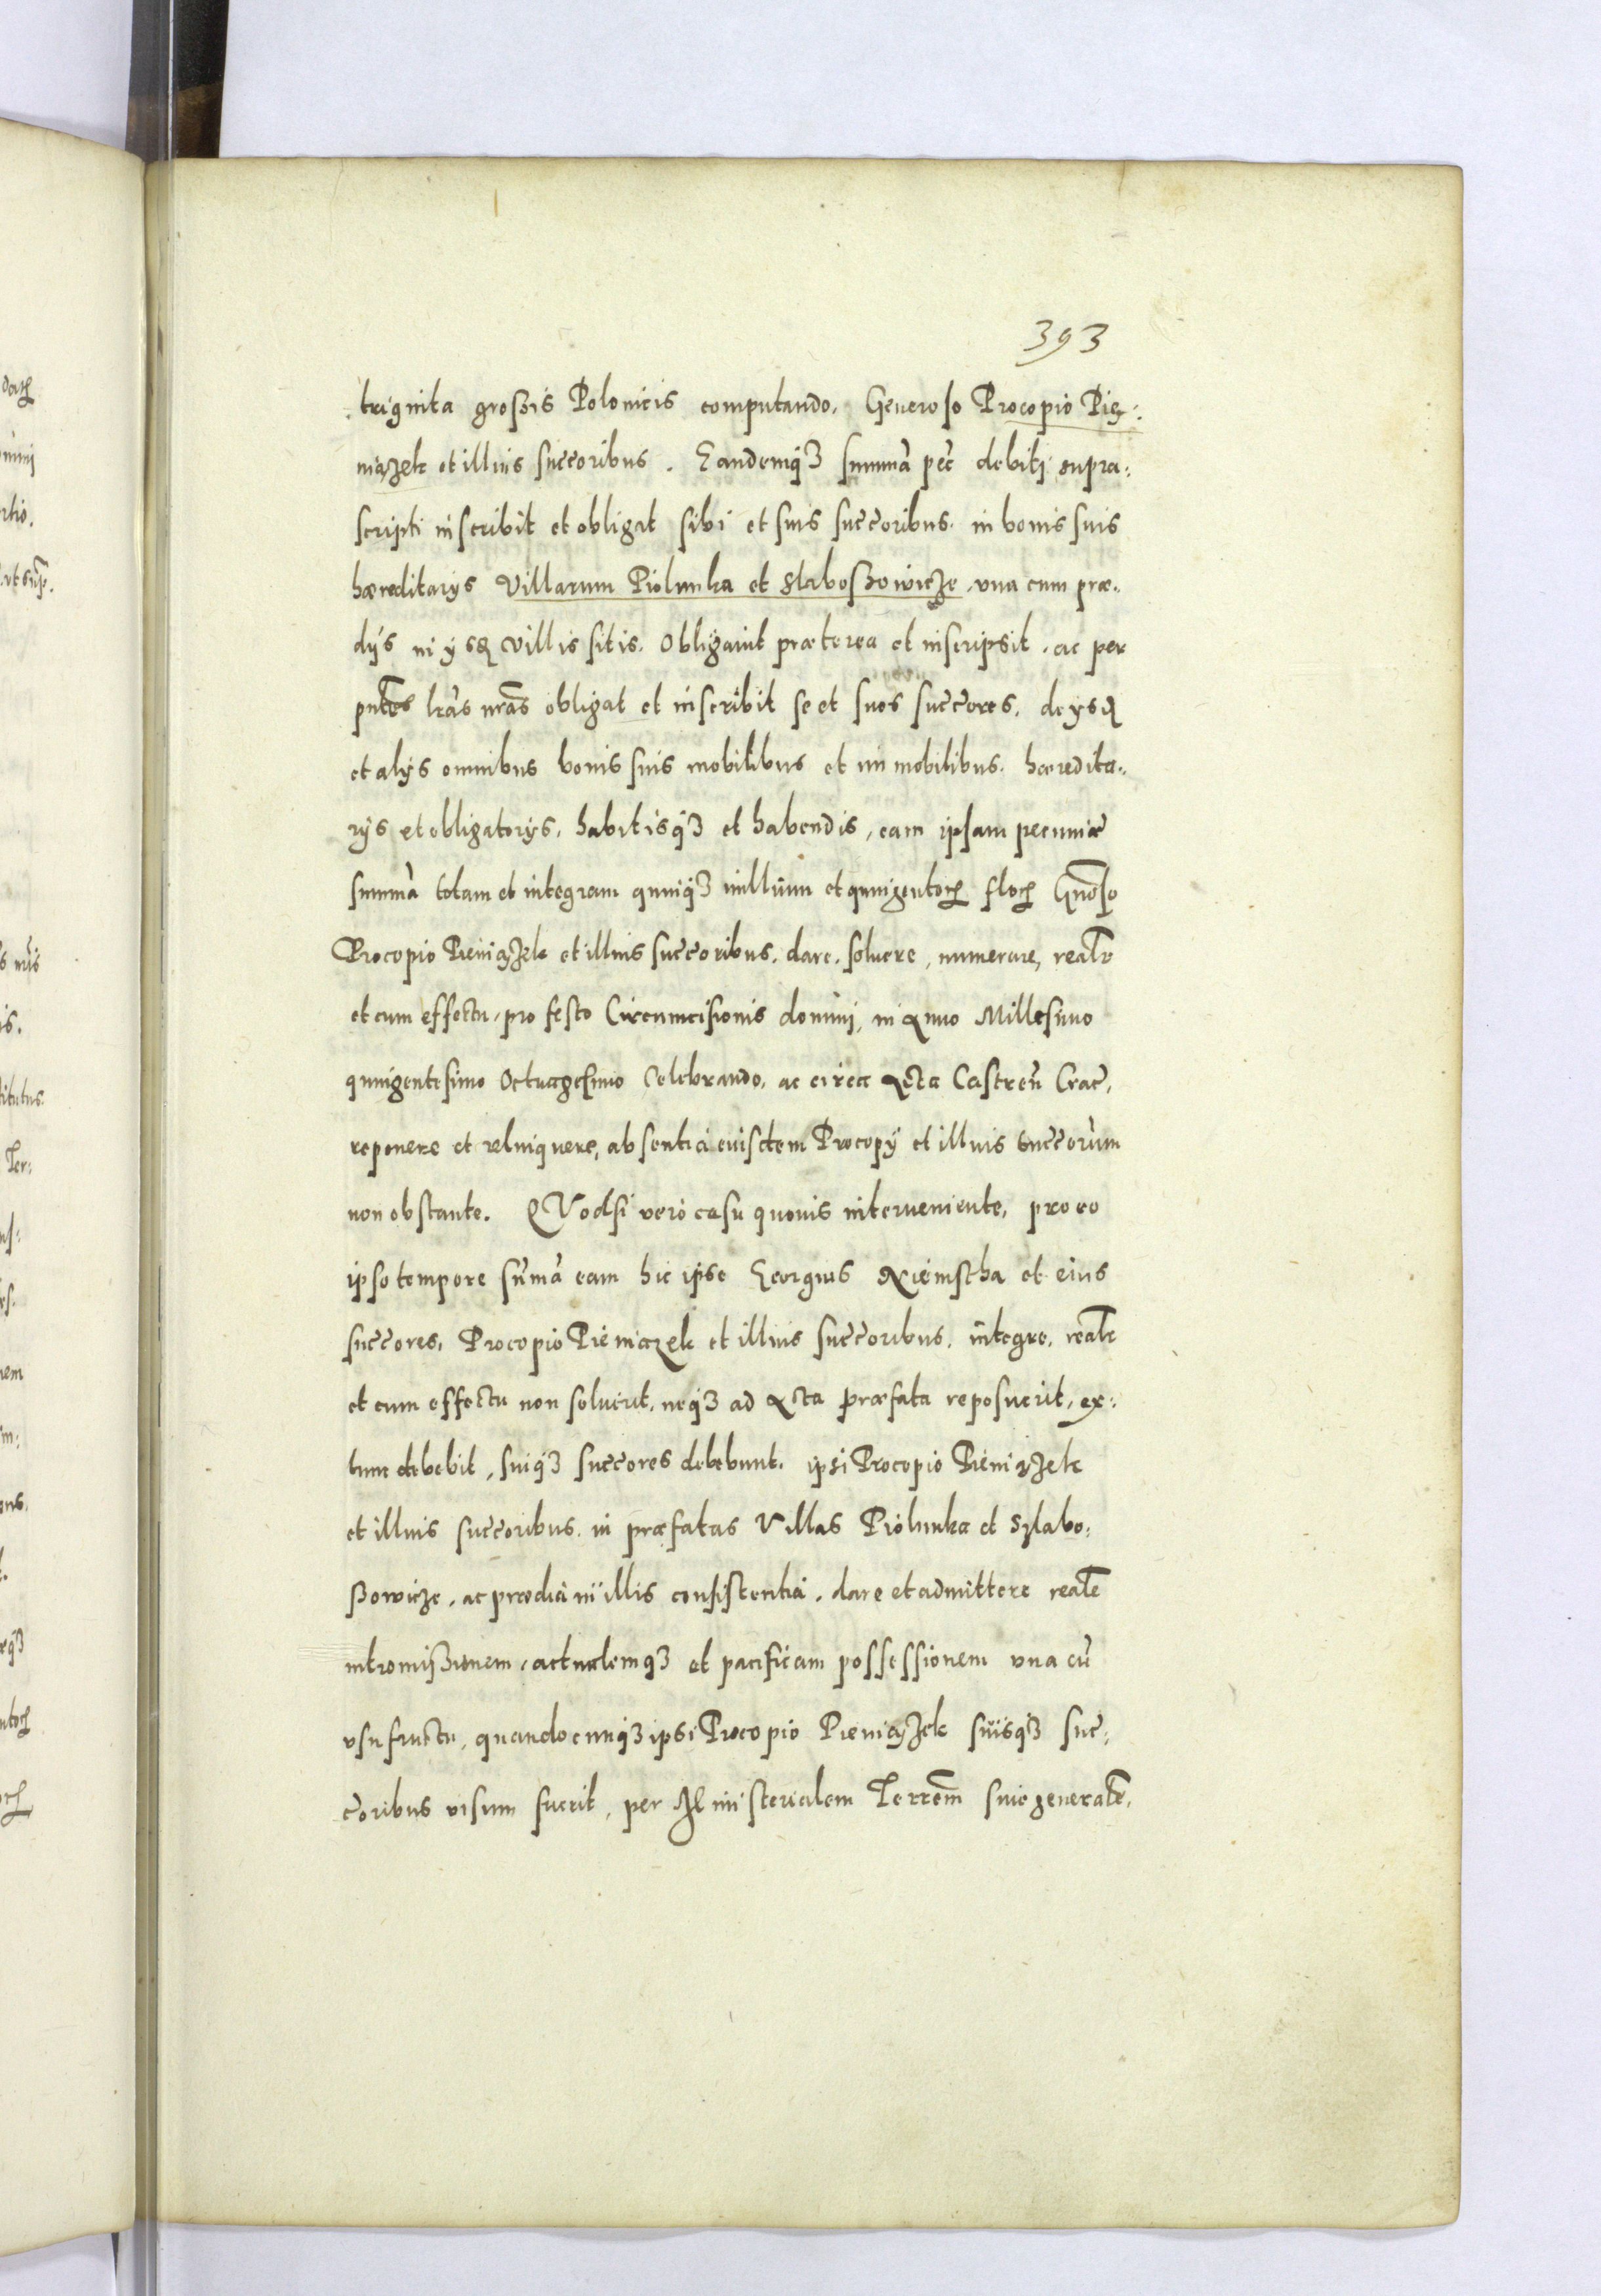 393
triginta großis Polonicis computando. Generoso Procopio Pie-
niązek et illius succoribus. Eandemqȝ summā pec̄ debiti supra-
scripti inscribit et obligat sibi et suis succoribus in bonis suis
hæreditarijs Villarum Piolunka et Slaboßowicze, vna cum præ-
dijs in ijsdē villis sitis. Obligauit præterea et inscripsit, ac per
pn̄tes lr̄as nr̄as obligat et inscribit se et suos succores, de ijsdē
et alijs omnibus bonis suis mobilibus et immobilibus hæredita-
rijs et obligatorijs, habitisqȝ et habendis, eam ipsam pecuniæ
summā totam et integram quinqȝ millium et quingentorū florū Gnōso
Procopio Pieniązek et illius succoribus, dare, soluere, numerare, realr̄
et cum effectu, pro festo Circumcisionis domini, in Anno Millesimo
quingentesimo Octuagesimo Celebrando, ac circa Acta Castren̄ Crac̄,
reponere et relinquere, absentia eiusdem Procopij et illius Succorum
non obstante. QVodsi vero casu quouis interueniente, pro eo
ipso tempore sum̄ā eam hic ipse Georgius Niemstha et eius
succores, Procopio Pieniazek et illius succoribus, integre, realr̄
et cum effectu non soluerit, neqȝ ad Acta præfata reposuerit, ex-
tunc debebit, suiqȝ succores debebunt, ipsi Procopio Pieniązek
et illius succoribus in præfatas Villas Piolunka et Slabo-
ßowicze, ac prædia in illis consistentia, dare et admittere realē
intromißionem, actualemqȝ et pacificam possessionem vna cū
vsufructu, quandocunqȝ ipsi Procopio Pieniązek suisqȝ suc-
coribus visum fuerit, per Ministerialem Terrēm siue generalē,